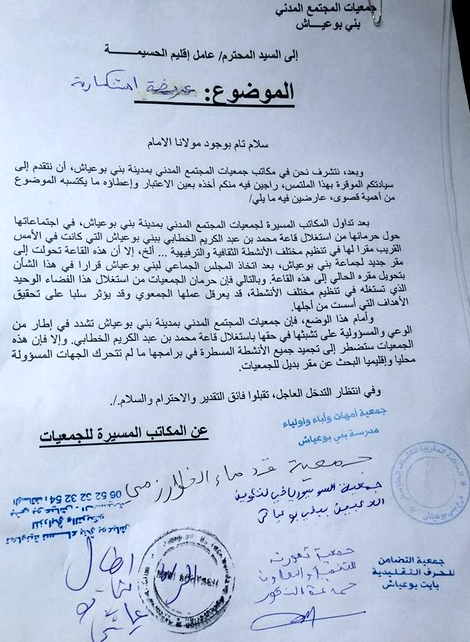 جمعيات المجتمع المدني
بني بوعياش
إلى السيد المحترم/ عامل إقليم الحسيمة
الموضوع: عريضة استنكارية
سلام تام بوجود مولانا الامام
وبعد، نتشرف نحن في مكاتب جمعيات المجتمع المدني بمدينة بني بوعياش، أن نتقدم إلى
سيادتكم الموقرة بهذا الملتمس، راجين فيه منكم أخذه بعين الاعتبار وإعطاؤه ما يكتسبه الموضوع
من أهمية قصوى، عارضين فيه ما يلي/
بعد تداول المكاتب المسيرة لجمعيات المجتمع المدني بمدينة بني بوعياش، في اجتماعاتها
حول حرمانها من استغلال قاعة محمد بن عبد الكريم الخطابي ببني بوعياش التي كانت في الأمس
القريب مقرا لها في تنظيم مختلف الأنشطة الثقافية والترفيهية ... ألخ، إلا أن هذه القاعة تحولت إلى
مقر جديد لجماعة بني بوعياش، بعد اتخاذ المجلس الجماعي لبني بوعياش قرارا في هذا الشأن
بتحويل مقره الحالي إلى هذه القاعة. وبالتالي فإن حرمان الجمعيات من استغلال هذا الفضاء الوحيد
الذي تستغله في تنظيم مختلف الأنشطة، قد يعرقل عملها الجمعوي وقد يؤثر سلبا على تحقيق
الأهداف التي أسست من أجلها.
وأمام هذا الوضع، فإن جمعيات المجتمع المدني بمدينة بني بوعياش تشدد في إطار من
الوعي والمسؤولية على تشبثها في حقها باستغلال قاعة محمد بن عبد الكريم الخطابي. وإلا فإن هذه
الجمعيات ستضطر إلى تجميد جميع الأنشطة المسطرة في برامجها ما لم تتحرك الجهات المسؤولة
محليا وإقليميا البحث عن مقر بديل للجمعيات.
وفي انتظار التدخل العاجل، تقبلوا فائق التقدير والاحترام والسلام./.
جمعية أمهات وآباء وأولياء
مدرسة بني بوعياش
عن المكاتب المسيرة للجمعيات
جمعية قدماء الخوارزمي
05 52 32 54
جمعية التضامن
للحرف التقليدية
بايت بوعياش